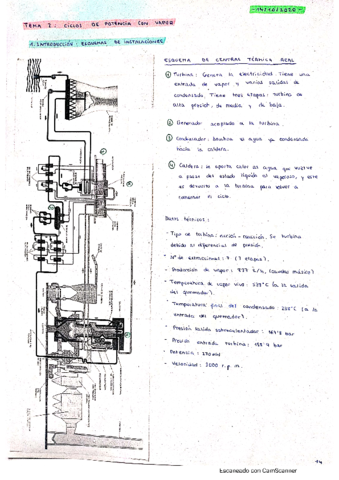 14/10/2020
TEMA 2: CICLOS DE POTENCIA CON VAPOR
1. INTRODUCCIÓN: ESQUEMAS DE INSTALACIONES
ESQUEMA DE CENTRAL TÉRMICA REAL
① Turbina: Genera la electricidad. Tiene una
entrada de vapor y varias salidas de
condensado. Tiene tres etapas: turbina de
alta presión, de media y de baja.
② Generador acoplado a la turbina.
③ Condensador: bombea el agua ya condensada
hacia la caldera.
④ Caldera: se aporta calor al agua que vuelve
a pasar del estado líquido al vaporoso, y éste
es devuelto a la turbina para volver a
comenzar el ciclo.
Datos técnicos:
- Tipo de turbina: acción - reacción. Su turbina
debido al diferencial de presión.
- Nº de extracciones: 7 (7 etapas).
- Producción de vapor: t/h (caudal másico)
- Temperatura de vapor vivo: (a la salida
del quemador).
- Temperatura final del condensado: (a la
entrada del quemador).
- Presión salida sobrecalentador: bar
- Presión entrada turbina: bar
- Potencia:
- Velocidad: 3000 r.p.m.
14
Escaneado con CamScanner